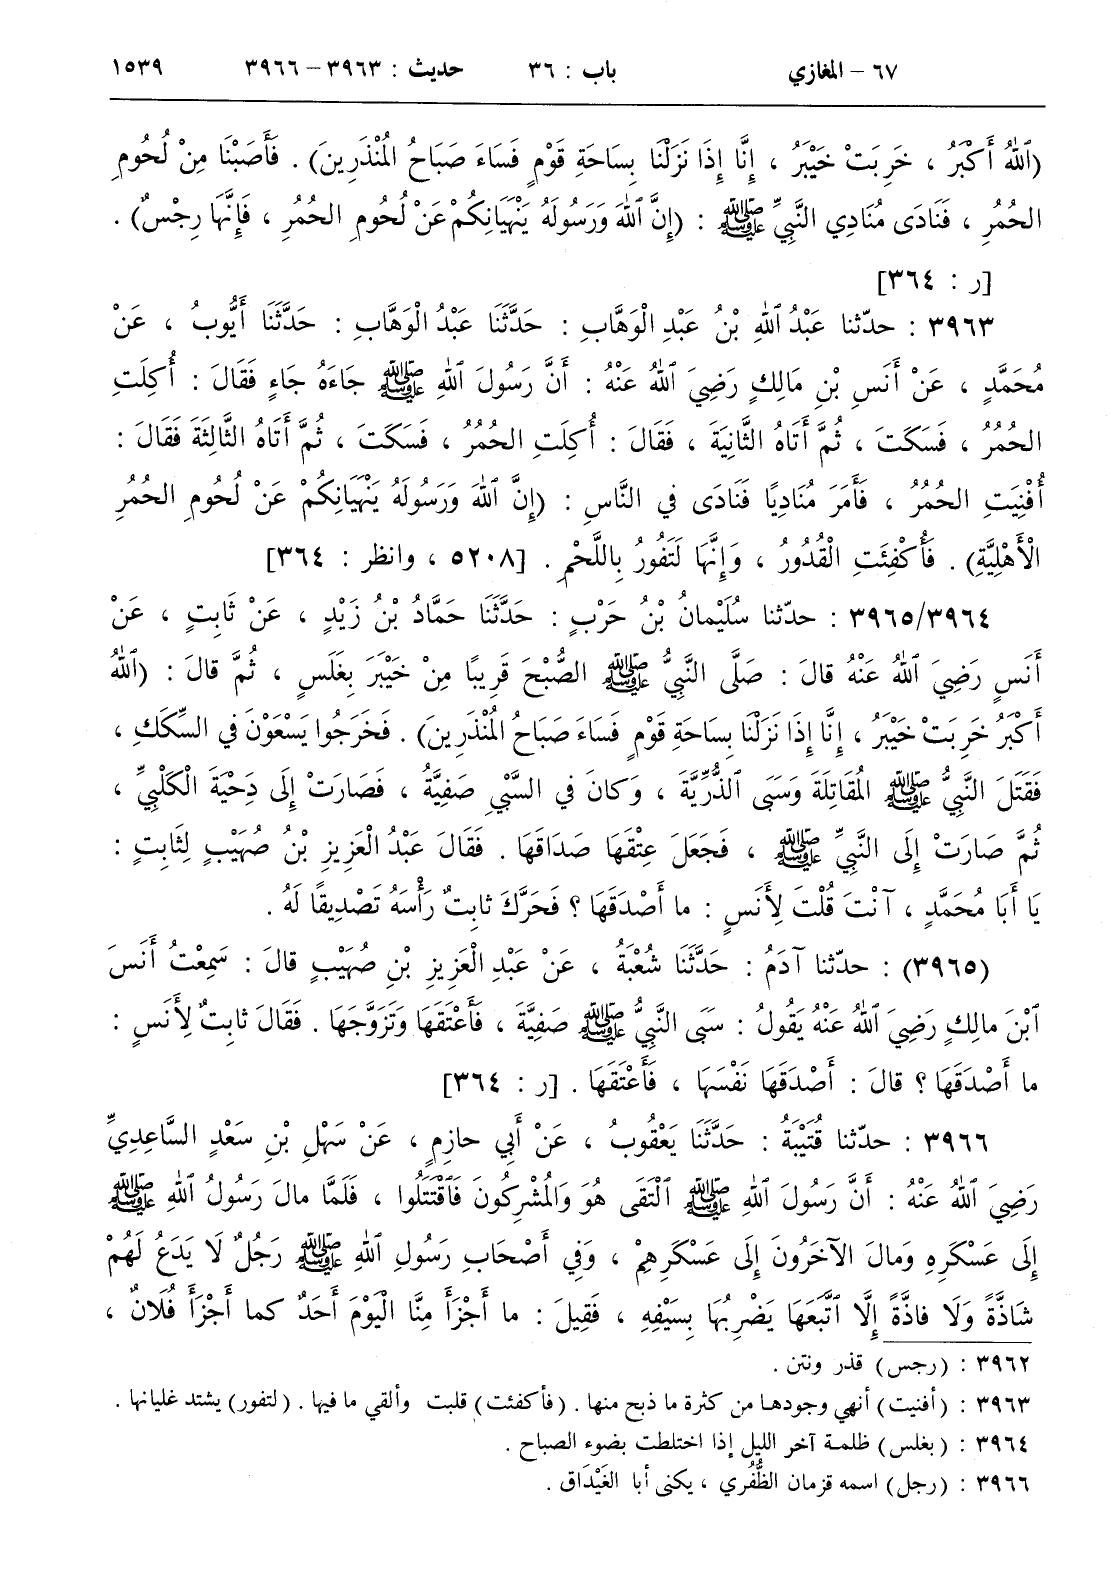 ٦٧ – المغازي باب : ٣٦ حديث : ٣٩٦٣ – ٣٩٦٦ ١٥٣٩
(ٱللهُ أَكْبَرُ ، خَرِبَتْ خَيْبَرُ ، إِنَّا إِذَا نَزَلْنَا بِسَاحَةِ قَوْمٍ فَسَاءَ صَبَاحُ الْمُنْذَرِينَ) . فَأَصَبْنَا مِنْ لُحُومِ
الحُمُرِ ، فَنَادَى مُنَادِي النَّبِيِّ ﷺ : (إِنَّ ٱللهَ وَرَسُولَهُ يَنْهَيَانِكُمْ عَنْ لُحُومِ الحُمُرِ ، فَإِنَّهَا رِجْسٌ) .
[ر : ٣٦٤]
٣٩٦٣ : حدّثنا عَبْدُ ٱللهِ بْنُ عَبْدِ الْوَهَّابِ : حَدَّثَنَا عَبْدُ الْوَهَّابِ : حَدَّثَنَا أَيُّوبُ ، عَنْ
مُحَمَّدٍ ، عَنْ أَنَسِ بْنِ مَالِكٍ رَضِيَ ٱللهُ عَنْهُ : أَنَّ رَسُولَ ٱللهِ ﷺ جَاءَهُ جَاءٍ فَقَالَ : أُكِلَتِ
الحُمُرُ ، فَسَكَتَ ، ثُمَّ أَتَاهُ الثَّانِيَةَ ، فَقَالَ : أُكِلَتِ الحُمُرُ ، فَسَكَتَ ، ثُمَّ أَتَاهُ الثَّالِثَةَ فَقَالَ :
أُفْنِيَتِ الحُمُرُ ، فَأَمَرَ مُنَادِيًا فَنَادَى في النَّاسِ : (إِنَّ ٱللهَ وَرَسُولَهُ يَنْهَيَانِكُمْ عَنْ لُحُومِ الحُمُرِ
الْأَهْلِيَّةِ) . فَأُكْفِئَتِ الْقُدُورُ ، وَإِنَّهَا لَتَفُورُ بِاللَّحْمِ . [٥٢٠٨ ، وانظر : ٣٦٤]
٣٩٦٥/٣٩٦٤ : حدّثنا سُلَيْمانُ بْنُ حَرْبٍ : حَدَّثَنَا حَمَّادُ بْنُ زَيْدٍ ، عَنْ ثَابِتٍ ، عَنْ
أَنَسٍ رَضِيَ ٱللهُ عَنْهُ قالَ : صَلَّى النَّبِيُّ ﷺ الصُّبْحَ قَرِيبًا مِنْ خَيْبَرَ بِغَلَسٍ ، ثُمَّ قالَ : (ٱللهُ
أَكْبَرُ خَرِبَتْ خَيْبَرُ ، إِنَّا إِذَا نَزَلْنَا بِسَاحَةِ قَوْمٍ فَسَاءَ صَبَاحُ الْمُنْذَرِينَ) . فَخَرَجُوا يَسْعَوْنَ في السِّكَكِ ،
فَقَتَلَ النَّبِيُّ ﷺ المُقَاتِلَةَ وَسَبَى ٱلذُّرِّيَّةَ ، وَكانَ في السَّبْيِ صَفِيَّةُ ، فَصَارَتْ إِلَى دَحْيَةَ الْكَلْبِيِّ ،
ثُمَّ صَارَتْ إِلَى النَّبِيِّ ﷺ ، فَجَعَلَ عِتْقَهَا صَدَاقَهَا . فَقَالَ عَبْدُ الْعَزِيزِ بْنُ صُهَيْبٍ لِثَابِتٍ :
يَا أَبَا مُحَمَّدٍ ، آنْتَ قُلْتَ لِأَنَسٍ : ما أَصْدَقَهَا ؟ فَحَرَّكَ ثابِتٌ رَأْسَهُ تَصْدِيقًا لَهُ .
(٣٩٦٥) : حدّثنا آدَمُ : حَدَّثَنَا شُعْبَةُ ، عَنْ عَبْدِ الْعَزِيزِ بْنِ صُهَيْبٍ قالَ : سَمِعْتُ أَنَسَ
ٱبْنَ مالِكٍ رَضِيَ ٱللهُ عَنْهُ يَقُولُ : سَبَى النَّبِيُّ ﷺ صَفِيَّةَ ، فَأَعْتَقَهَا وَتَزَوَّجَهَا . فَقَالَ ثابِتٌ لِأَنَسٍ :
ما أَصْدَقَهَا ؟ قالَ : أَصْدَقَهَا نَفْسَهَا ، فَأَعْتَقَهَا . [ر : ٣٦٤]
٣٩٦٦ : حدّثنا قُتَيْبَةُ : حَدَّثَنَا يَعْقُوبُ ، عَنْ أَبِي حازِمٍ ، عَنْ سَهْلِ بْنِ سَعْدٍ السَّاعِدِيِّ
رَضِيَ ٱللهُ عَنْهُ : أَنَّ رَسُولَ ٱللهِ ﷺ ٱلْتَقَى هُوَ وَالْمُشْرِكُونَ فَٱقْتَتَلُوا ، فَلَمَّا مالَ رَسُولُ ٱللهِ ﷺ
إِلَى عَسْكَرِهِ وَمالَ الآخَرُونَ إِلَى عَسْكَرِهِمْ ، وَفي أَصْحَابِ رَسُولِ ٱللهِ ﷺ رَجُلٌ لَا يَدَعُ لَهُمْ
شَاذَّةً وَلَا فاذَّةً إِلَّا ٱتَّبَعَهَا يَضْرِبُهَا بِسَيْفِهِ ، فَقِيلَ : ما أَجْزَأَ مِنَّا الْيَوْمَ أَحَدٌ كما أَجْزَأَ فُلَانٌ ،
٣٩٦٢ : (رجس) قذر ونتن .
٣٩٦٣ : (أفنيت) أنهي وجودها من كثرة ما ذبح منها . (فأكفئت) قلبت وألقي ما فيها . (لتفور) يشتد غليانها .
٣٩٦٤ : (بغلس) ظلمة آخر الليل إذا اختلطت بضوء الصباح .
٣٩٦٦ : (رجل) اسمه قزمان الظُّفُري ، يكنى أبا الغَيْدَاق .